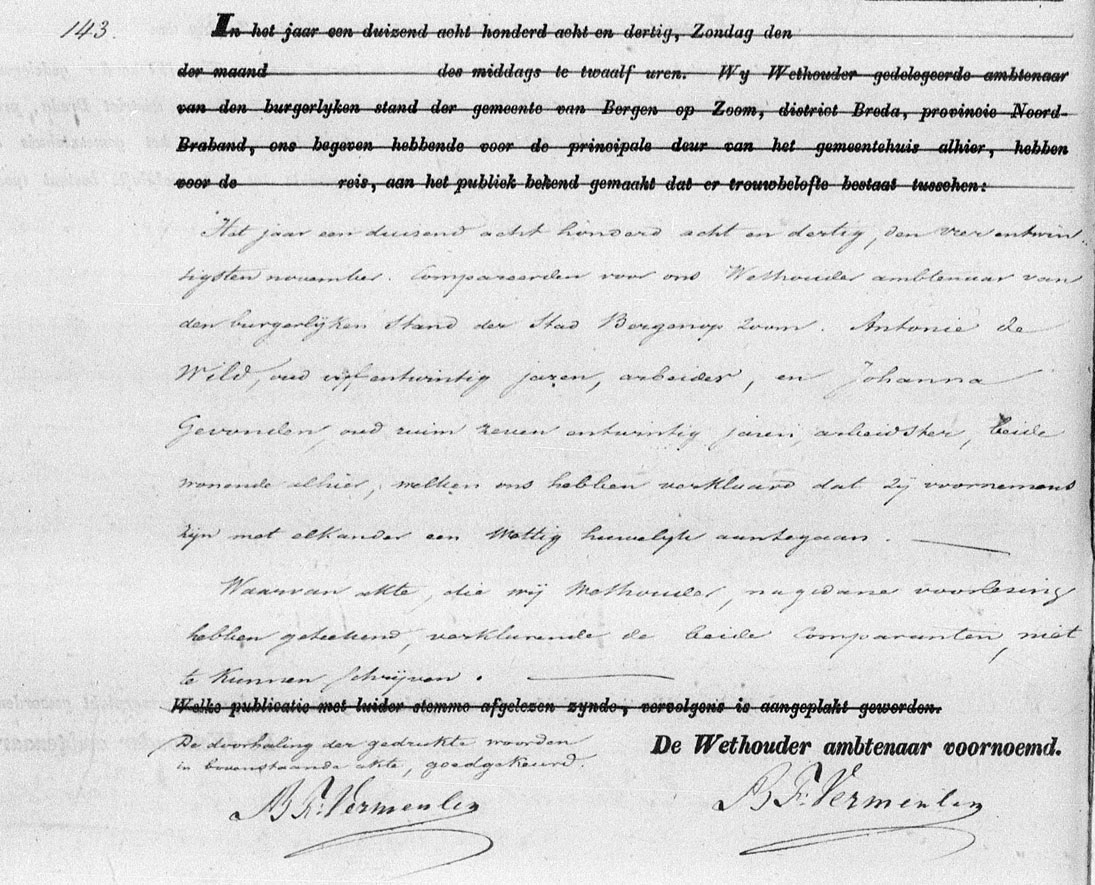 143.
In het jaar een duizend acht honderd acht en dertig, Zondag den
der maand des middags te twaalf uren. Wy Wethouder gedelegeerde ambtenaar
van den burgerlyken stand der gemeente van Bergen op Zoom, district Breda, provincie Noord-
Braband, ons begeven hebbende voor de principale deur van het gemeentehuis alhier, hebben
voor de reis, aan het publiek bekend gemaakt dat er trouwbelofte bestaat tusschen:
Het jaar een duizend acht honderd acht en dertig, den vier entwin-
tigsten november. Compareerden voor ons Wethouder ambtenaar van
den burgerlijken Stand der Stad Bergenop Zoom. Antonie de
Wild, oud vijf entwintig jaren, arbeider, en Johanna
Gevonden, oud ruim zeven entwintig jaren, arbeidster, beide
wonende alhier, welken ons hebben verklaard dat zij voornemens
zijn met elkander een Wettig huwelyk aantegaan.
Waarvan akte, die wij Wethouder, na gedane voorlezing
hebben geteekend, verklarende de beide Comparanten, niet
te kunnen schrijven.
Welke publicatie met luider stemme afgelezen zynde, vervolgens is aangeplakt geworden.
De doorhaling der gedrukte woorden
in bovenstaande akte, goedgekeurd.
De Wethouder ambtenaar voornoemd.
Vermeulen
Vermeulen